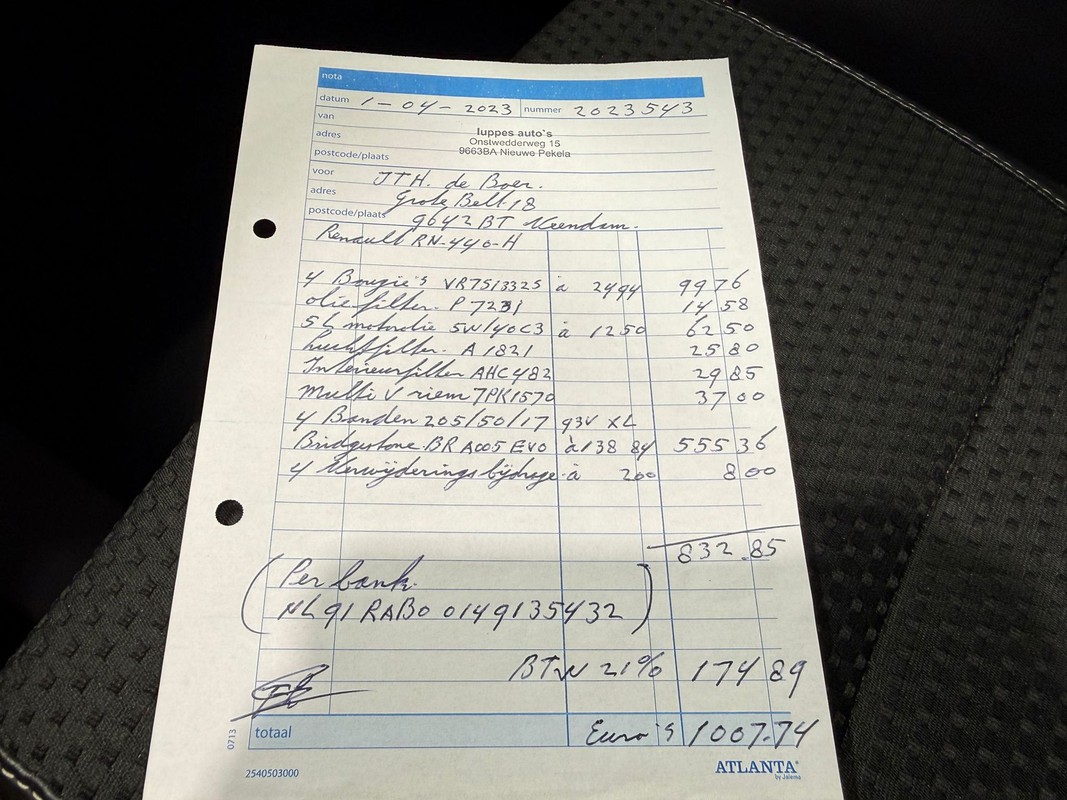 nota
datum 1-04-2023 nummer 2023543
van
luppes auto`s
adres
Onstwedderweg 15
postcode/plaats
9663BA Nieuwe Pekela
voor JTH. de Boer.
adres Grote Belt 18
postcode/plaats 9642 BT Veendam.
Renault RN-440-H
4 Bougie's VR7513325 à 24 94 99 76
oliefilter. P7231 14 58
5L motorolie 5W/40C3 à 12 50 62 50
luchtfilter. A 1821 25 80
Interieurfilter AHC482 29 85
Multi V riem 7PK1570 37 00
4 Banden 205/50/17 93V XL
Bridgestone. BR A005 EVO à 138 84 555 36
4 Verwijderings bijdrage à 2 00 8 00
832.85
(Per bank.
NL91 RABO 0149135432)
BTW 21% 174 89
totaal Euro's 1007.74
0713
2540503000
ATLANTA
by Jalema